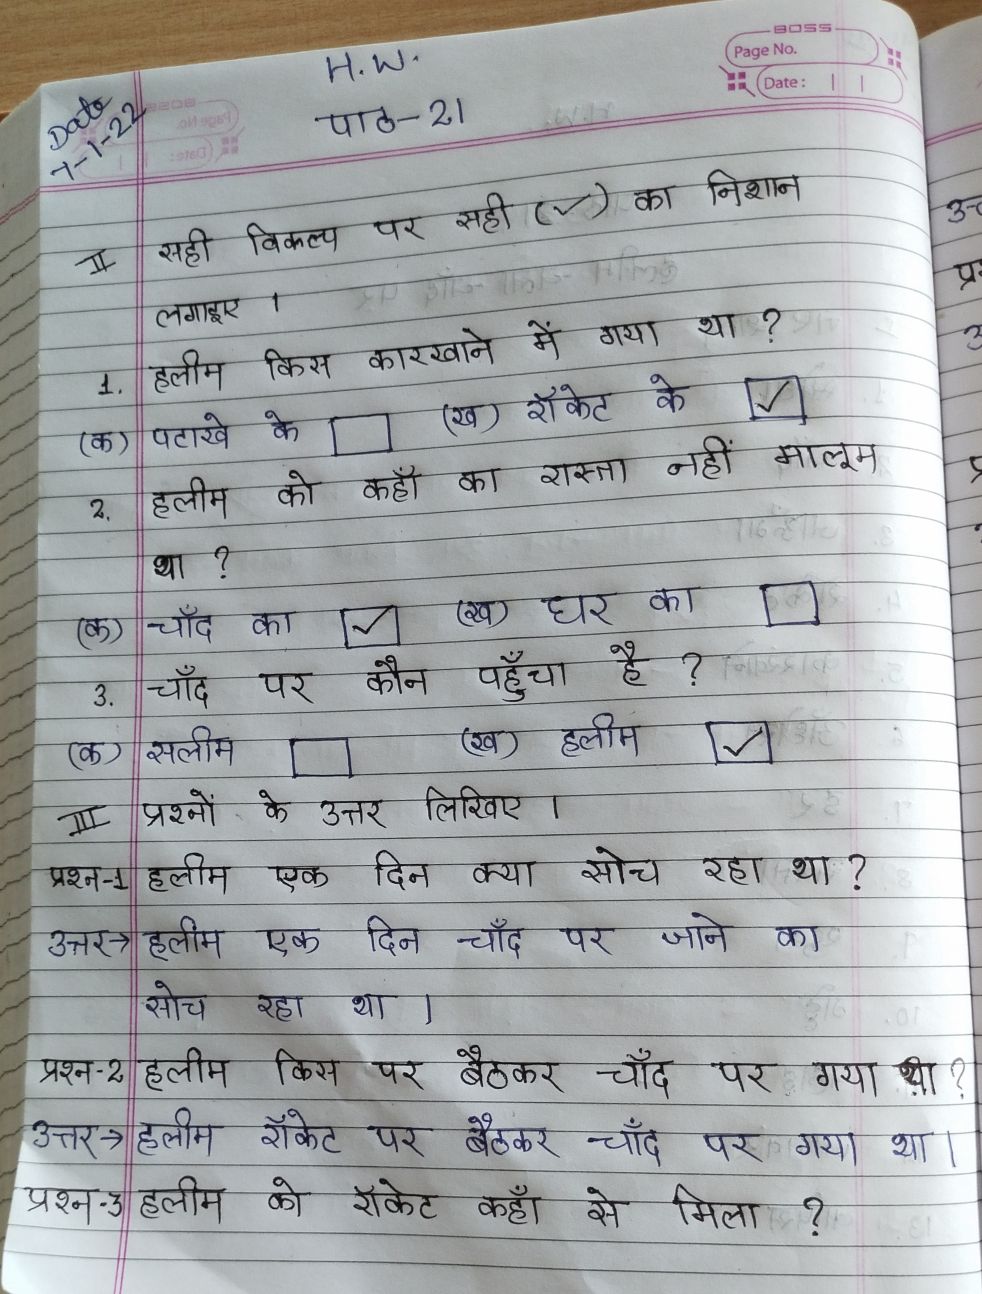 BOSS
Page No.
Date:
H.W.
Date
7-1-22
पाठ-21
II सही विकल्प पर सही (✓) का निशान
लगाइए ।
1. हलीम किस कारखाने में गया था ?
(क) पटाखे के ☐ (ख) रॉकेट के ☑
2. हलीम को कहाँ का रास्ता नहीं मालूम
था ?
(क) चाँद का ☑ (ख) घर का ☐
3. चाँद पर कौन पहुँचा है ?
(क) सलीम ☐ (ख) हलीम ☑
III प्रश्नों के उत्तर लिखिए ।
प्रश्न-1 हलीम एक दिन क्या सोच रहा था ?
उत्तर→ हलीम एक दिन चाँद पर जाने का
सोच रहा था ।
प्रश्न-2 हलीम किस पर बैठकर चाँद पर गया था ?
उत्तर→ हलीम रॉकेट पर बैठकर चाँद पर गया था ।
प्रश्न-3 हलीम को रॉकेट कहाँ से मिला ?